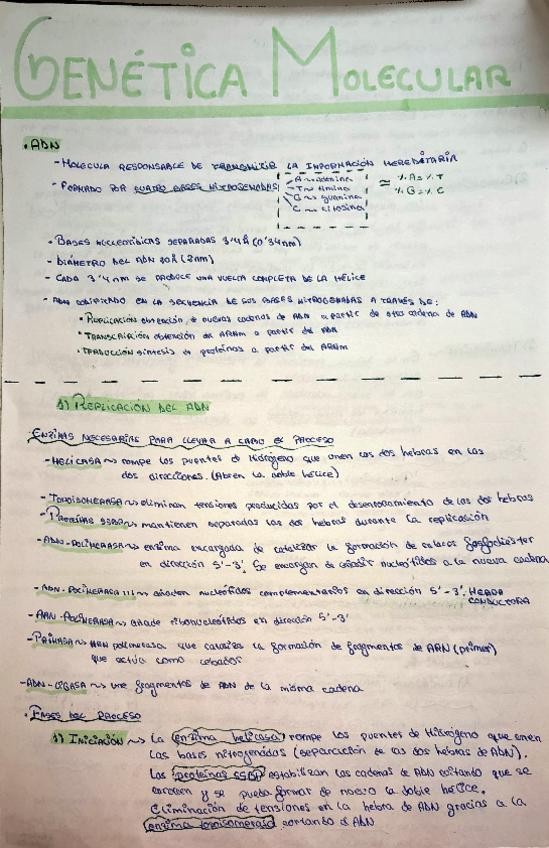 GENÉTICA MOLECULAR
• ADN
- MOLECULA RESPONSABLE DE TRANSMITIR LA INFORMACIÓN HEREDITARIA
- FORMADO POR CUATRO BASES NITROGENADAS
A ~> adenina
T ~> timina
G ~> guanina
C ~> citosina
≃ %A = %T
%G = %C
• BASES NUCLEOTÍDICAS SEPARADAS 3'4 Å (0'34nm)
- DIÁMETRO DEL ADN 20Å (2nm)
- CADA 3'4nm SE PRODUCE UNA VUELTA COMPLETA DE LA HÉLICE
- ADN CODIFICADO EN LA SECUENCIA DE SUS BASES NITROGENADAS A TRAVÉS DE:
• REPLICACIÓN obtención de nuevas cadenas de ADN a partir de otra cadena de ADN
• TRANSCRIPCIÓN obtención del ARNm a partir del ADN
• TRADUCCIÓN síntesis de proteínas a partir del ARNm
1) REPLICACIÓN DEL ADN
ENZIMAS NECESARIAS PARA LLEVAR A CABO EL PROCESO
- HELICASA ~> rompe los puentes de hidrógeno que unen las dos hebras en las
dos direcciones. (Abren la doble hélice)
- TOPOISOMERASA ~> eliminan tensiones producidas por el desenrollamiento de las dos hebras
- PROTEÍNAS SSB ~> mantienen separadas las dos hebras durante la replicación
- ADN-POLIMERASA ~> enzima encargada de catalizar la formación de enlaces fosfodiéster
en dirección 5'-3'. Se encargan de añadir nucleótidos a la nueva cadena
- ADN-POLIMERASA III ~> añaden nucleótidos complementarios en dirección 5'-3'. HEBRA
CONDUCTORA
- ARN-POLIMERASA ~> añade ribonucleótidos en dirección 5'-3'
- PRIMASA ~> ARN polimerasa que cataliza la formación de fragmentos de ARN (primer)
que actúa como cebador
- ADN-LIGASA ~> une fragmentos de ADN de la misma cadena
• FASES DEL PROCESO
1) INICIACIÓN ~> La enzima helicasa rompe los puentes de hidrógeno que unen
las bases nitrogenadas (separación de las dos hebras de ADN).
Las proteínas SSB estabilizan las cadenas de ADN evitando que se
enrollen y se pueda formar de nuevo la doble hélice.
Eliminación de tensiones en la hebra de ADN gracias a la
enzima topoisomerasa cortando el ADN